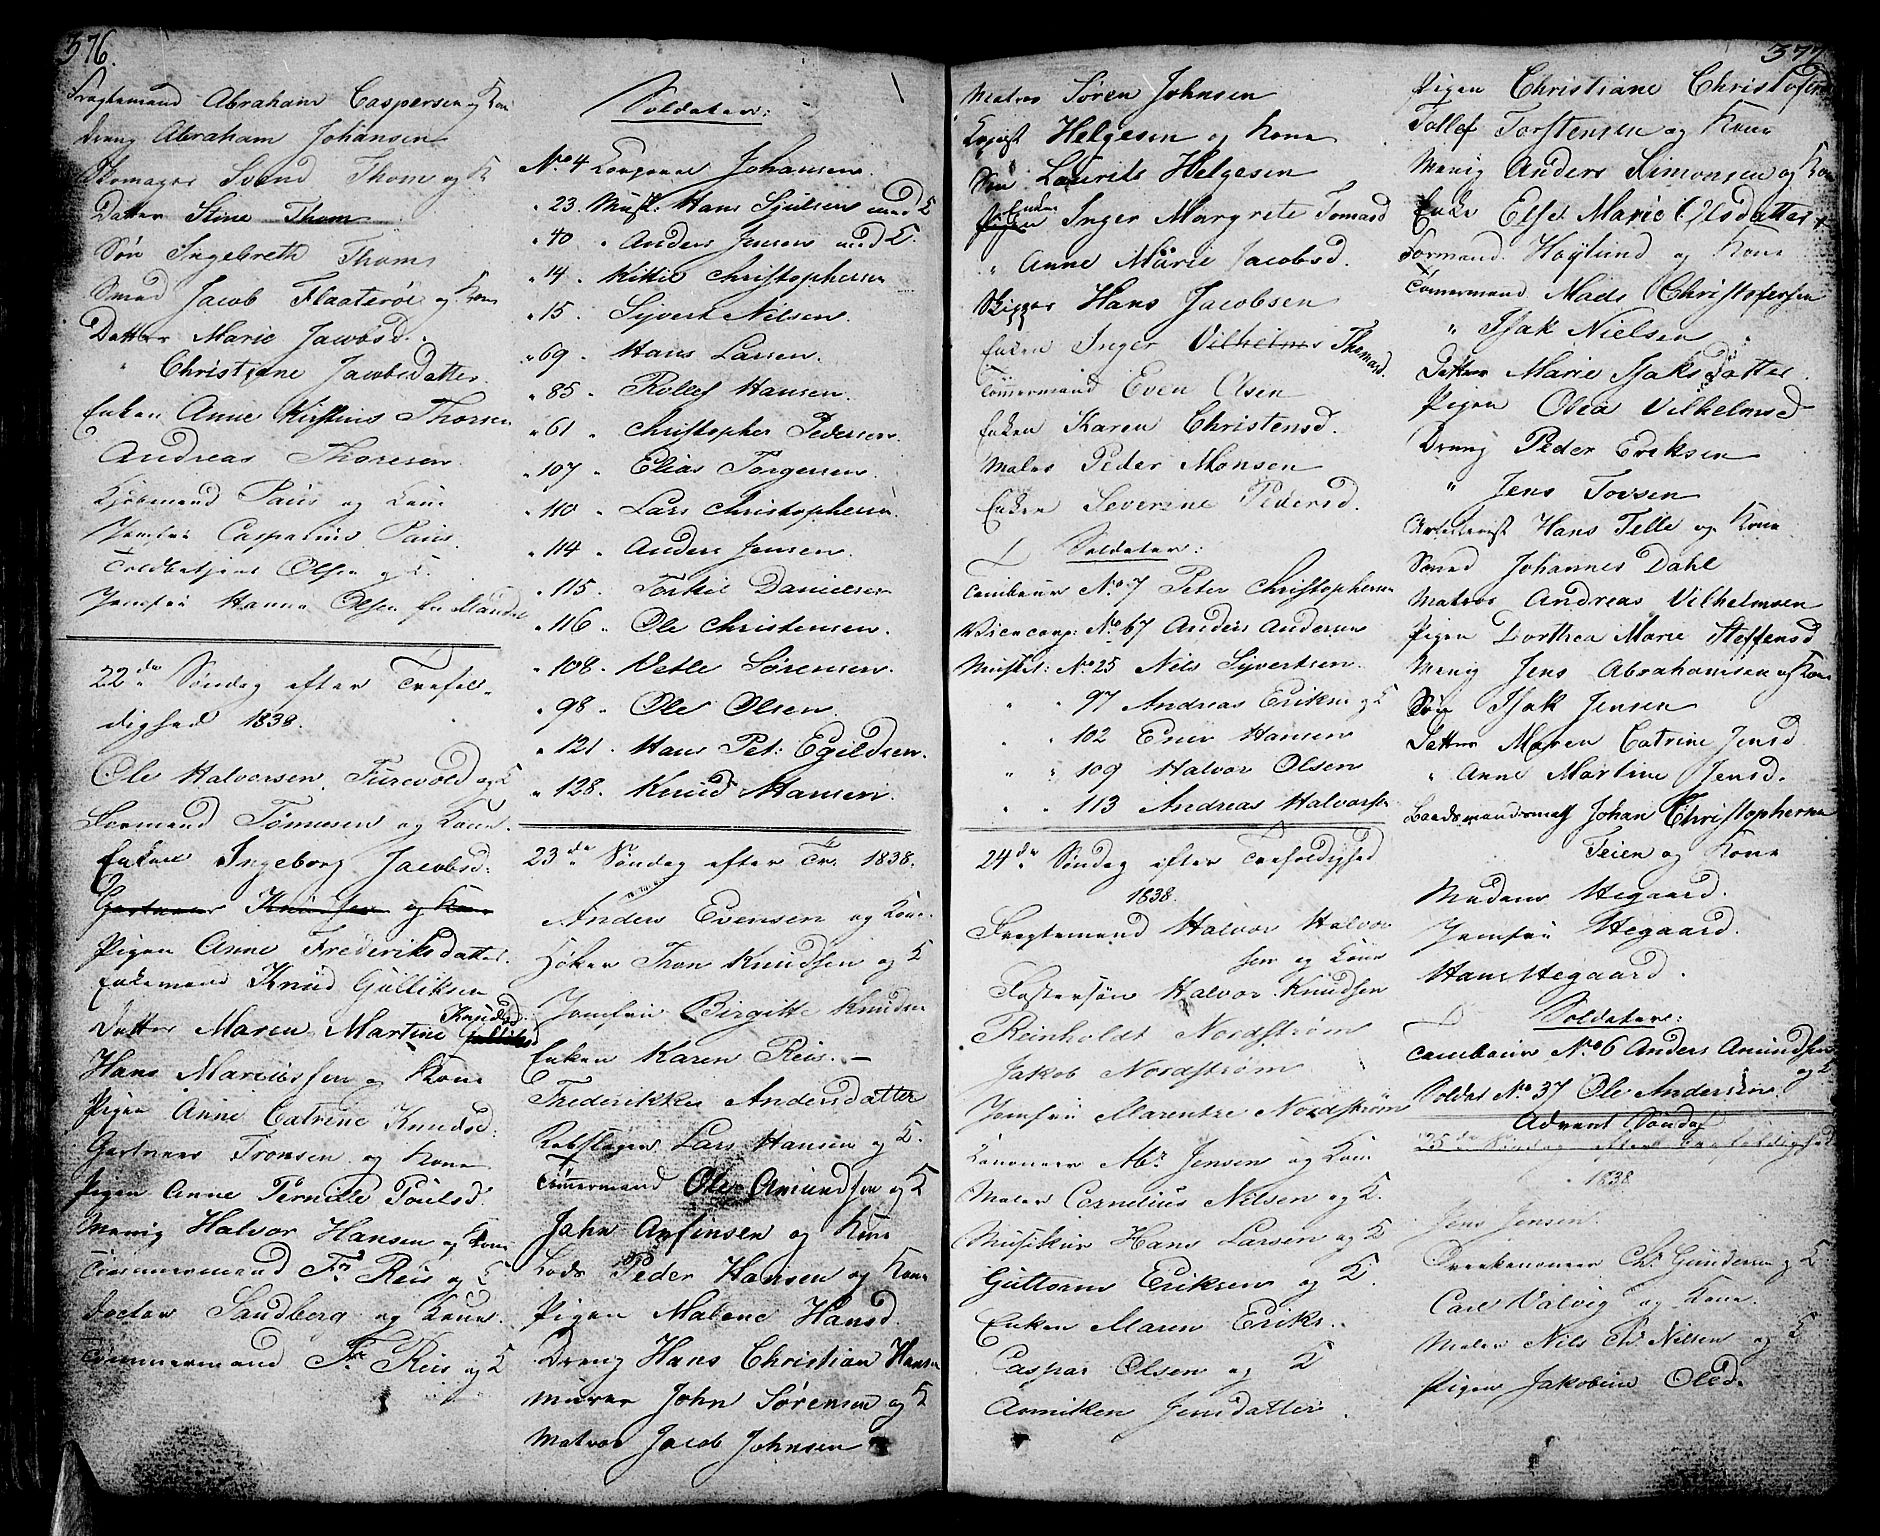 376.
Fragtemand Abraham Caspersen og Kon
Dreng Abraham Johansen
Skomager Svend Thom og K
Datter Stine Thom
Søn Ingebreth Thom
Smed Jacob Flaaterøe og Kone
Datter Marie Jacobsd.
" Christiane Jacobsdatter.
Enken Anne Kirstine Thorsen
Andreas Thoresen.
Kjøbmand Paus og Kone
Jomfru Caspaline Paus.
Toldbetjent Olsen og K.
Jomfru Hanna Olsen fra Mandal
22de Søndag efter Trefol-
dighed 1838.
Ole Halvorsen Turevold og K
Formand Tømesen og Kone.
Enken Ingeborg Jacobsd.
Gartner Knudsen og Kone
Pigen Anne Frederiksdatter.
Enkemand Knud Gulliksen
Datter Maren Martine Knudsd
Hans Mariussen og Kone
Pigen Anne Catrine Knudsd.
Gartner Tronsen og Kone
Pigen Anne Pernille Poulsd.
Menig Halvor Hansen og Kone
Tømmermand Fr Reis og K
Doctor Sandberg og Kone.
Tømmermand Fr. Reis og K
Soldater:
No. 4 Corporal Johansen.
" 23. Musk. Hans Sjulsen med K
" 40 " Anders Jensen med K.
" 14. " Kittil Christophersen
" 15. " Syvert Nilsen.
" 69. " Hans Larsen.
" 85. " Rollef Hansen.
" 61 " Christopher Pedersen.
" 107 " Elias Torgersen
" 110 " Lars Christophersen.
" 114 " Anders Jensen.
" 115. " Torkil Danielsen
" 116 " Ole Christensen.
" 108 " Vetle Sørensen.
" 98 " Ole Olsen.
" 121. " Hans Pet: Egildsen.
" 128. " Knud Hansen.
23de Søndag efter Tr. 1838.
Anders Evensen og Kone.
Høker Thon Knudsen og K
Jomfru Birgitte Knudsen
Enken Karen Reis. —
Frederikke Andersdatter
Rebslager Lars Hansen og K.
Tømmermand Ole Amundsen og K
John Arfinsen og Kone
Lods Peder Hansen og Kone
Pigen Malene Hansd.
Dreng Hans Christian Hansen
Murer John Sørensen og K
Matros Jacob Johnsen
377.
Matros Søren Johnsen
Helgesen og Kone
Søn Laurits Helgesen
Enken Inger Margrete Tomasd
" Anne Marie Jacobsd.
Skipper Hans Jacobsen
Enken Inger Vilhelmes Thomasd.
Tømmermand Even Olsen
Enken Karen Christensd.
Maler Peder Monsen
Enken Severine Pedersd.
Soldater:
Tambour No. 7 Peter Christophersen
Vicecorp: No 67 Anders Andersen
Musket: No 25 Nils Syvertsen.
" " 97 Andreas Eriksen og K
" " 102 Ener Hansen
" " 109 Halvor Olsen
" " 113 Andreas Halvorsen
24de Søndag efter Trefoldighed
1838.
Fragtemand Halvor Halvor
sen og Kone
Fostersøn Halvor Knudsen
Reinholdt Nordstrøm
Jakob Nordstrøm
Jomfru Marentze Nordstrøm
Kanoneer Mr Jensen og Kone
Maler Cornelius Nilsen og K.
Musikus Hans Larsen og K
Guttorm Eriksen og K.
Enken Maren Eriks.
Caspar Olsen og K
Armiken Jensdatter.
Pigen Christiane Christofersd
Tollef Torstensen og Kone
Menig Anders Simonsen og Kone
Enke Else Marie Olsdatter
Formand Høylund og Kone
Tømmermand Mads Christofersen
" Isak Nielsen
Datter Marie Isaksdatter.
Pigen Olea Vilhelmsd
Dreng Peder Eriksen
" Jens Tovsen
Artellerist Hans Telle og Kone
Smed Johannes Dahl
Matros Andreas Vilhelmsen
Pigen Dorthea Marie Steffensd
Menig Jens Abrahamsen og Kone
Søn Isak Jensen
Datter Maren Catrine Jensd.
" Anne Martine Jensd.
Baadsmandsmat Johan Christophersen
Teien og Kone
Madam Hegaard.
Jomfru Hegaard.
Hans Hegaard.
Soldater:
Tambour No 6 Anders Amundsen
og K
Soldat No. 37 Ole Andersen.
Advent Søndag
25de Søndag efter Trefoldighed
1838
Jens Jensen.
Chr. Gundersen og K
Carl Valvig og Kone.
Maler Nils Chr Nilsen og K
Pigen Jakobine Olsd.